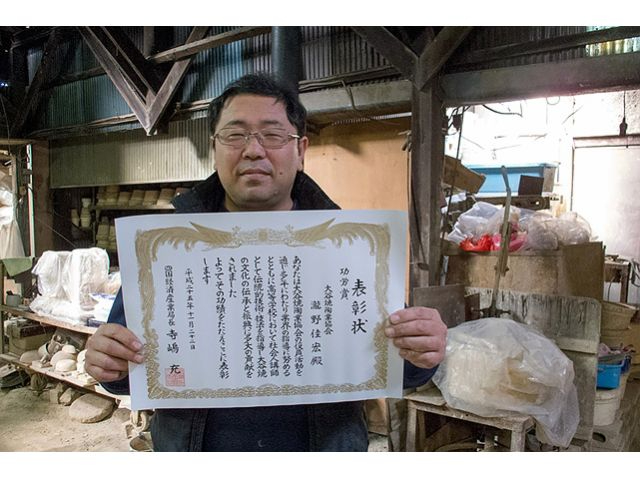 表彰状
功労賞
大谷焼陶業協会
瀧野佳宏殿
あなたは大谷焼陶業協会の役員活動を
通し多年にわたり業界の指導に努める
とともに高等学校において社会人講師
として伝統的技術・技法を指導し大谷焼
の文化の伝承と振興に多大の貢献を
されました
よってその功績をたたえここに表彰
します
平成二十五年十一月二十二日
四国経済産業局長 寺嶋 充